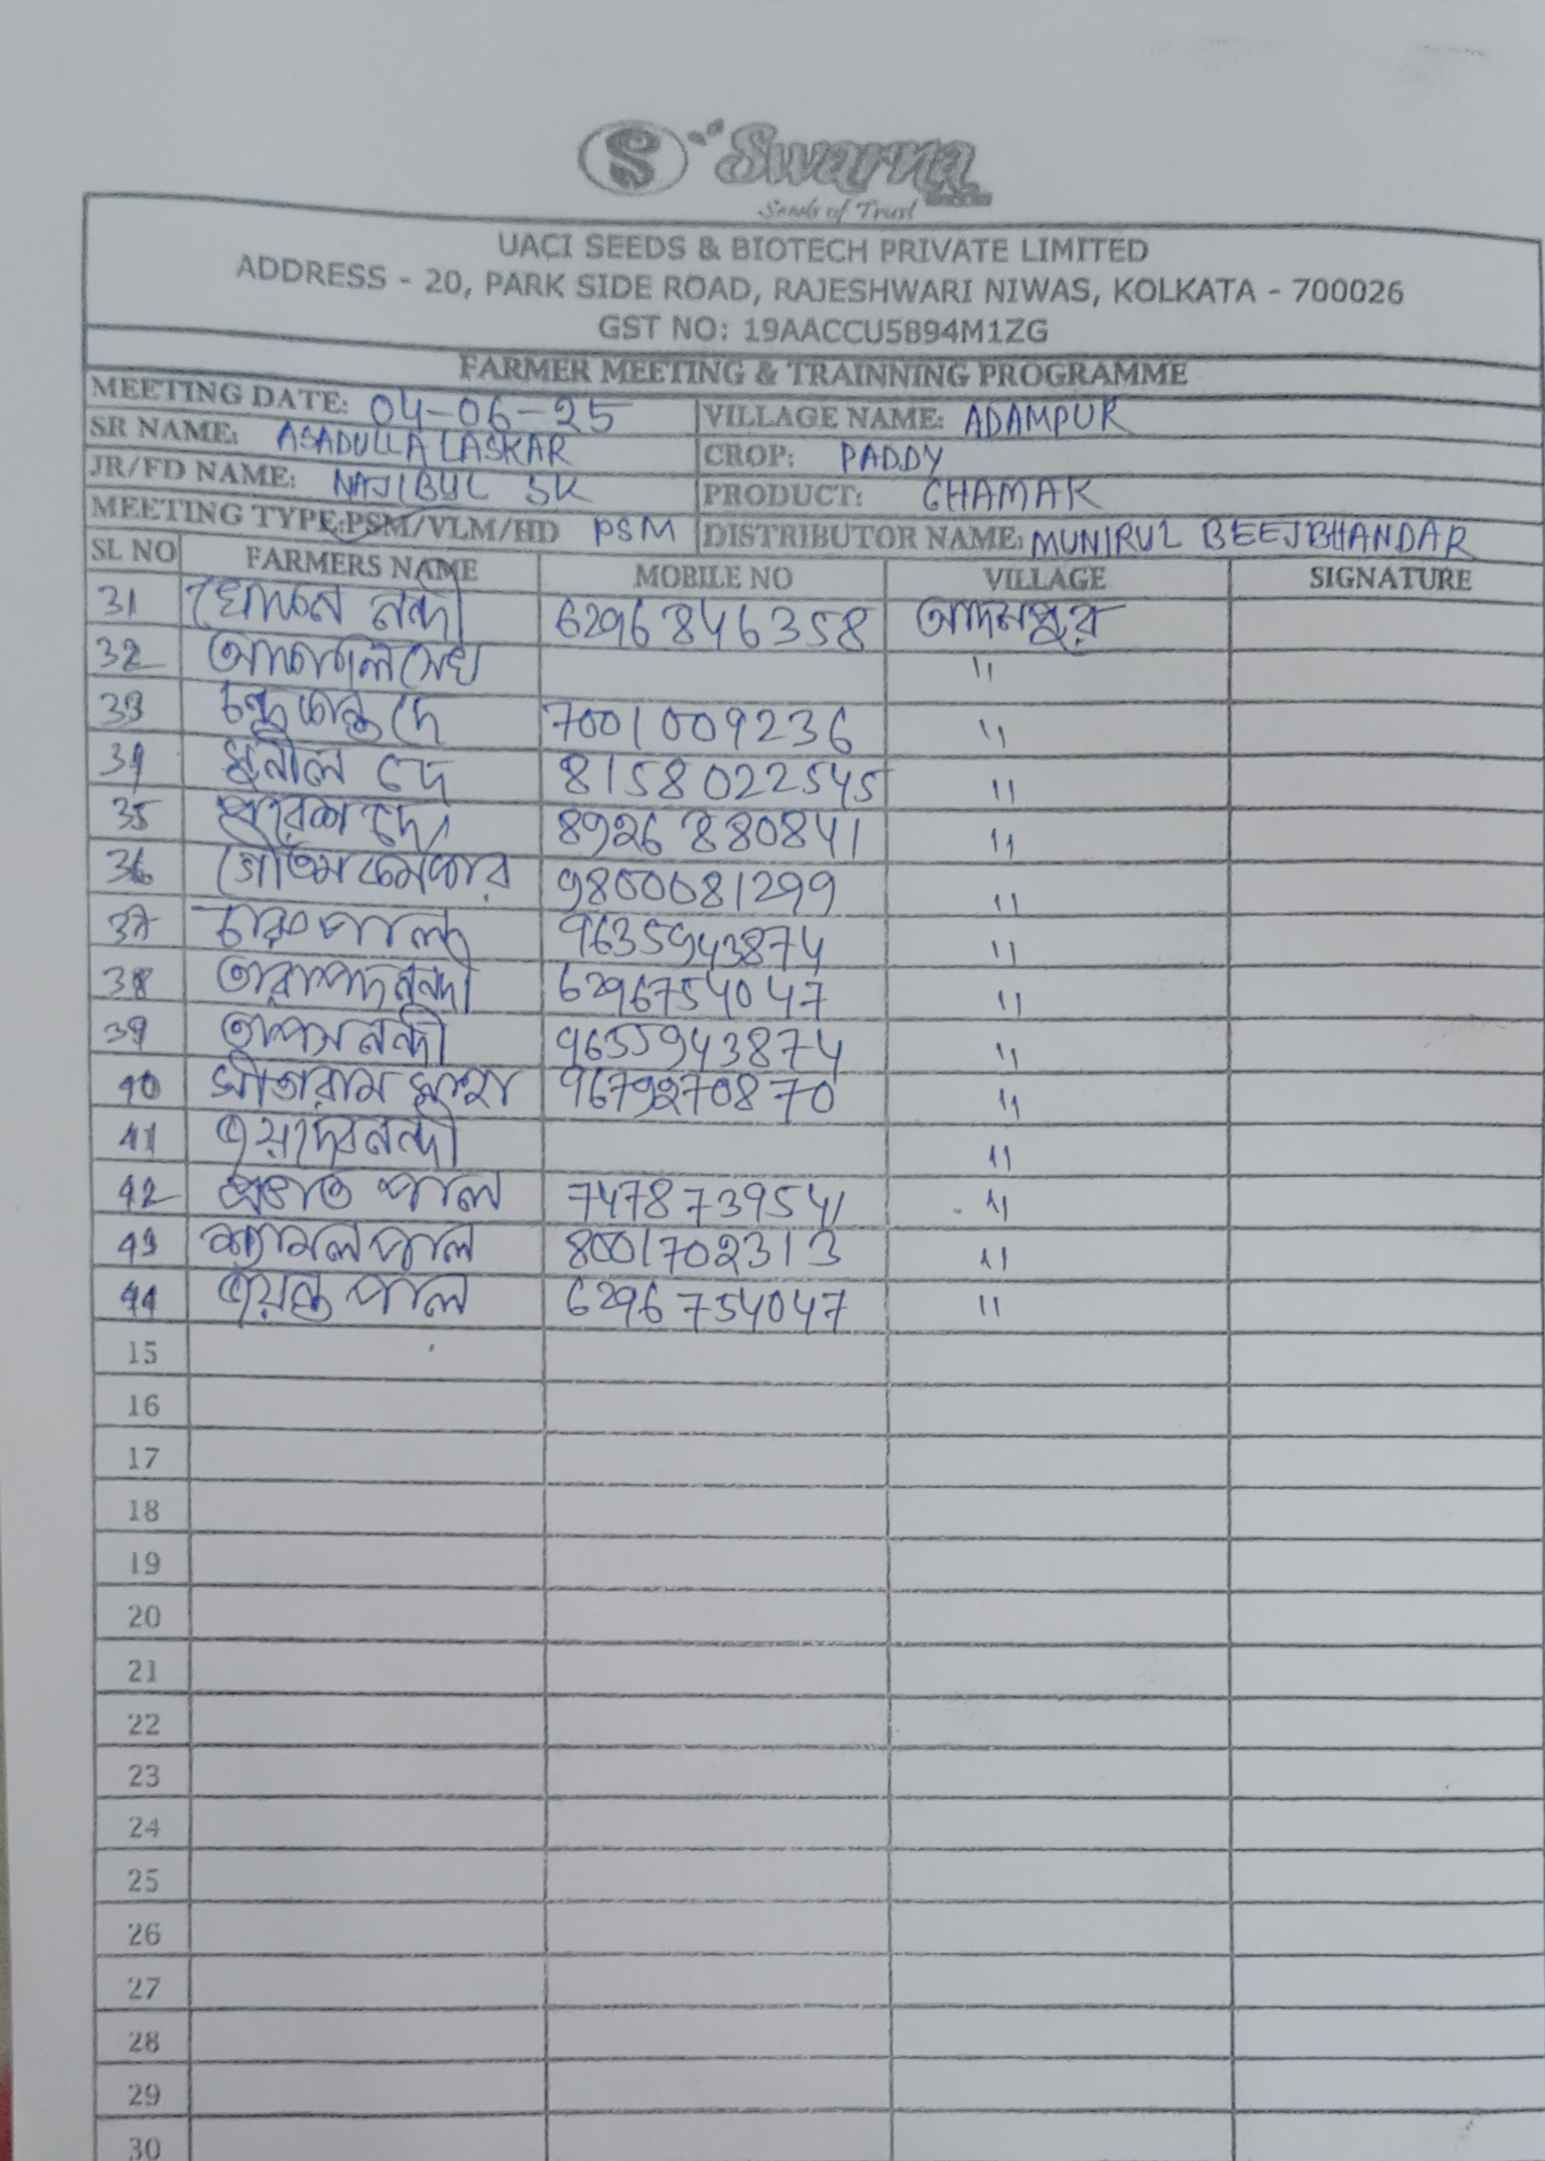 S Swarna
Seeds of Trust
UACI SEEDS & BIOTECH PRIVATE LIMITED
ADDRESS - 20, PARK SIDE ROAD, RAJESHWARI NIWAS, KOLKATA - 700026
GST NO: 19AACCU5894M1ZG
FARMER MEETING & TRAINNING PROGRAMME
MEETING DATE: 04-06-25 VILLAGE NAME: ADAMPUR
SR NAME: ASADULLA LASKAR CROP: PADDY
JR/FD NAME: NAJIBUL SK PRODUCT: CHAMAK
MEETING TYPE:PSM/VLM/HD PSM DISTRIBUTOR NAME: MUNIRUL BEEJBHANDAR
SL NO FARMERS NAME MOBILE NO VILLAGE SIGNATURE
31 নন্দী 6296846358 আদমপুর
32 সেখ "
33 চন্দ্র কান্ত দে 7001009236 "
34 সুনীল দে 8158022545 "
35 পরেশ দে 8926880841 "
36 গৌতম কর্মকার 9800081299 "
37 পাল 9635943874 "
38 তারাপদ নন্দী 6296754047 "
39 তাপস নন্দী 9635943874 "
40 সীতারাম সাহা 9679270870 "
41 জয়দেব নন্দী "
42 প্রভাত পাল 7478739541 "
43 শ্যামল পাল 8001702313 "
44 জয়ন্ত পাল 6296754047 "
15
16
17
18
19
20
21
22
23
24
25
26
27
28
29
30